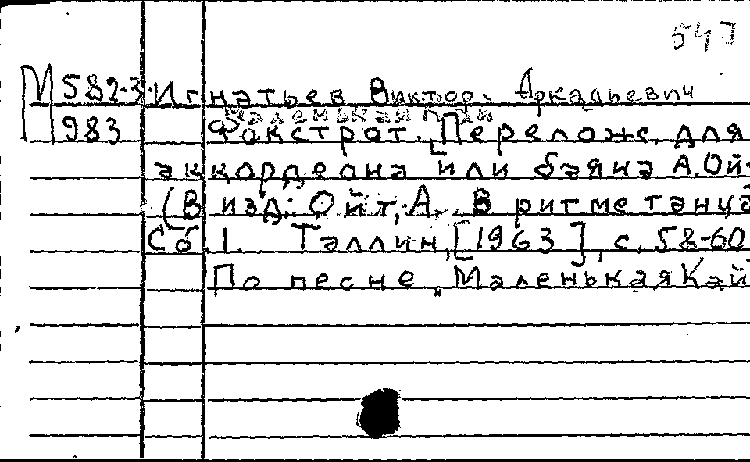 547
М 582-3 Игнатьев Виктор Аркадьевич
Маленькая Кай
983 Фокстрот. [Перелож. для
аккордеона или баяна А. Ой-
(В изд.: Ойт, А. В ритме танца
Сб. 1. Таллин, [1963], с. 58-60
По песне „Маленькая Кай